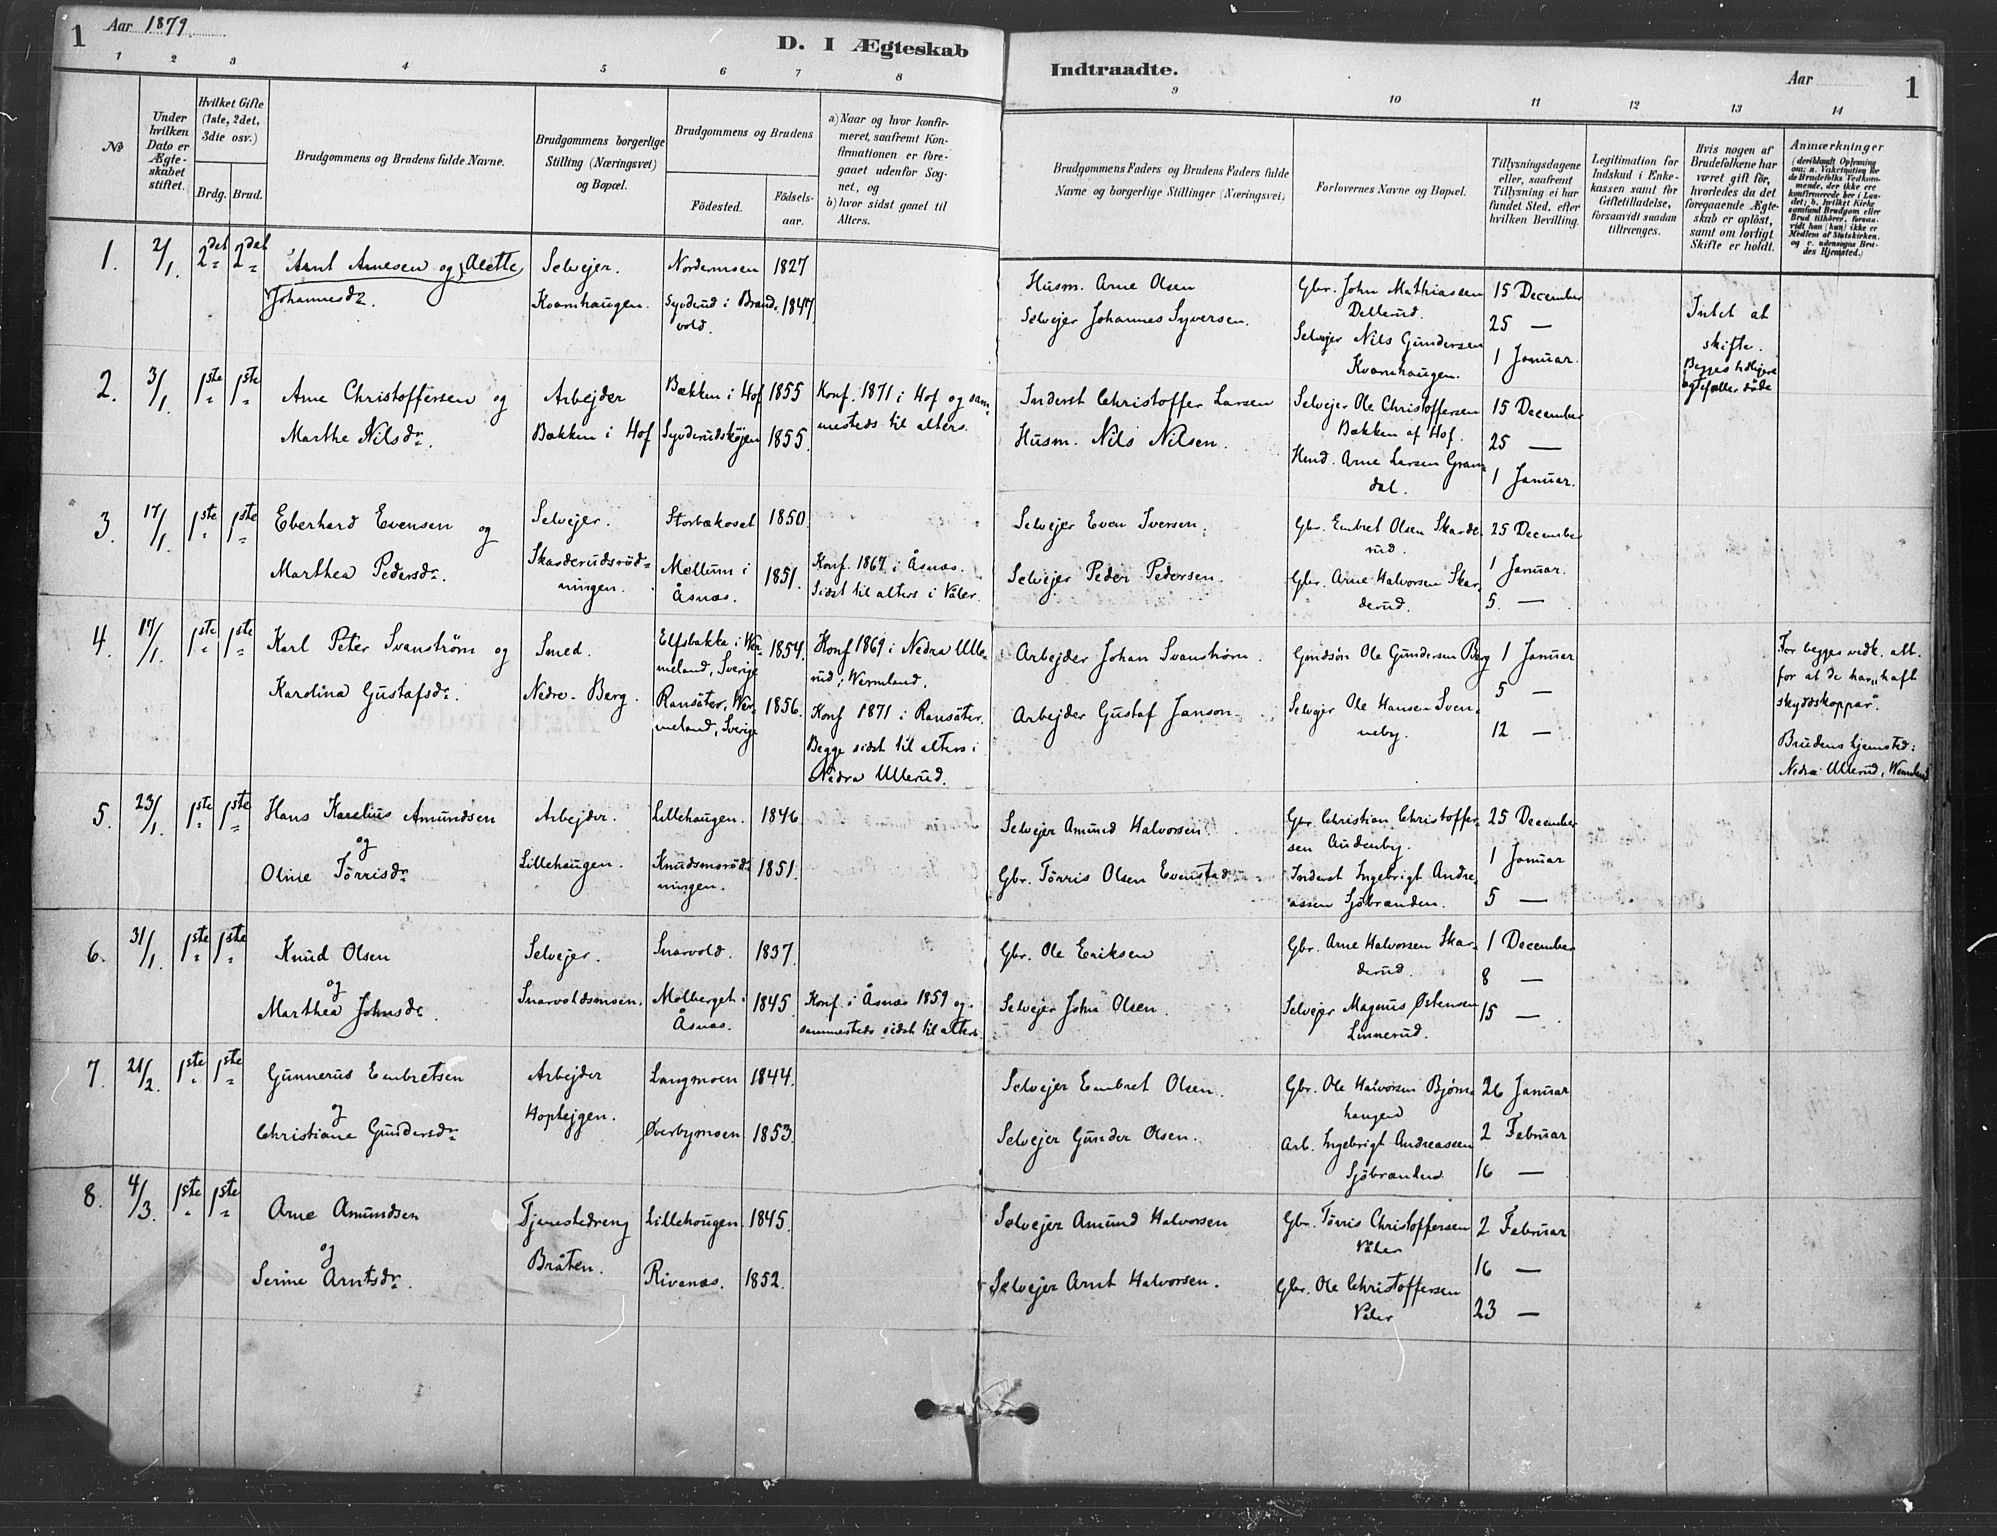 1 Aar 1879.
D. I Ægteskab
Indtraadte.
Aar 1
1 2 3 4 5 6 7 8 9 10 11 12 13 14
No
Under hvilken Dato er Ægteskabet stiftet.
Hvilket Gifte (1ste, 2det, 3die osv.)
Brdg. Brud.
Brudgommens og Brudens fulde Navne.
Brudgommens borgerlige Stilling (Næringsvei) og Bopæl.
Brudgommens og Brudens
Fødested. Fødselsaar.
a) Naar og hvor konfirmeret, saafremt Konfirmationen er foregaaet udenfor Sognet, og
b) hvor sidst gaaet til Alters.
Brudgommens Faders og Brudens Faders fulde Navne og borgerlige Stillinger (Næringsvei)
Forlovernes Navne og Bopæl.
Tillysningsdagene eller, saafremt Tillysning ei har fundet Sted, efter hvilken Bevilling.
Legitimation for Indskud i Enkekassen samt for Giftetilladelse, forsaavidt saadan tiltrænges.
Hvis nogen af Brudefolkene har været gift før, hvorledes da det foregaaende Ægteskab er opløst, samt om lovligt Skifte er holdt.
Anmærkninger
1. 2/1. 2det 2det Arnt Arnesen og Alette
Johannesdr.
Selvejer.
Kvarnhaugen.
Nordermoen 1827
Syverud i Brandvold. 1847
Husm. Arne Olsen
Selvejer Johannes Syversen.
Gbr. John Mathiassen
Dellerud.
Selvejer Nils Gundersen
Kvarnhaugen.
15 December
25 —
1 Januar.
Intet at
skifte.
Begges tidligere
egtefæller døde
2. 3/1. 1ste 1ste Arne Christoffersen og
Marthe Nilsdr.
Arbejder
Bækken i Hof
Bækken i Hof 1855
1855
Konf. 1871 i Hof og sam-
mesteds til alters.
Inderst Christoffer Larsen
Husm. Nils Nilsen.
Selvejer Ole Christoffersen
Bækken af Hof.
Hmd. Arne Larsen Gran-
dal.
15 December
25 —
1 Januar.
3. 17/1. 1ste 1ste Eberhard Evensen og
Marthea Pedersdr.
Selvejer.
Skarderudsrød-
ningen.
Storbækoset 1850
Mellum i
Åsnæs. 1851.
Konf. 1867 i Åsnæs.
Sidst til alters i Våler.
Selvejer Even Iversen.
Selvejer Peder Pedersen.
Gbr. Embret Olsen Skarde-
rud.
Gbr. Arne Halvorsen Skar-
derud.
25 December
1 Januar.
5. —
4. 17/1. 1ste 1ste Karl Peter Svanstrøm og
Karolina Gustafsdr.
Smed.
Nedre-Berg.
Elfsbakka i Wer-
meland, Sverige 1854.
Ransäter, Wer-
meland, Sverige 1856.
Konf 1869 i Nedra Ulle-
rud, Wermland.
Konf 1871 i Ransäter.
Begge sidst til alters i
Nedra Ullerud.
Arbejder Johan Svanstrøm.
Arbejder Gustaf Janson.
Gmdsøn Ole Gundersen Berg
Selvejer Ole Hansen Sven-
neby.
1 Januar
5 —
12 —
For begges vedk. att.
for at de har „haft
skyddskoppar“.
Brudens hjemsted:
Nedra Ullerud, Wermland
5. 23/1. 1ste 1ste Hans Karelius Amundsen
og
Oline Tørrisdr.
Arbejder.
Lillehaugen.
Lillehaugen. 1846
Knudsmosrød-
ningen. 1851.
Selvejer Amund Halvorsen
Gbr. Tørris Olsen Evenstad
Gbr. Christian Christoffer-
sen Audenby.
Inderst Ingebrigt Andre-
assen Sjøbranden.
25 December
1 Januar
5 —
6. 31/1. 1ste 1ste Knud Olsen
og
Marthea Johnsdr.
Selvejer.
Snarvoldsmoen.
Snarvold. 1837.
Molberget i
Åsnæs. 1845
Konf. i Åsnæs 1859 og
sammesteds sidst til alters.
Gbr. Ole Eriksen
Selvejer John Olsen.
Gbr. Arne Halvorsen Skar-
derud.
Selvejer Magnus Østensen
Linnerud.
1 December
8 —
15 —
7. 21/2. 1ste 1ste Gunnerus Embretsen
og
Christiane Gundersdr.
Arbejder
Langmoen 1844.
Øverbymoen 1853.
Selvejer Embret Olsen.
Selvejer Gunder Olsen.
Gbr. Ole Halvorsen Bjørn-
haugen
Arb. Ingebrigt Andreassen
Sjøbranden.
26 Januar
2 Februar
16 —
8. 4/3. 1ste 1ste Arne Amundsen
og
Serine Arntsdr.
Tjenestedreng
Bråten.
Lillehougen. 1845.
Rivenæs. 1852.
Selvejer Amund Halvorsen
Selvejer Arnt Halvorsen.
Gbr. Tørris Christoffersen
Våler
Gbr. Ole Christoffersen
Våler
2 Februar
16 —
23 —